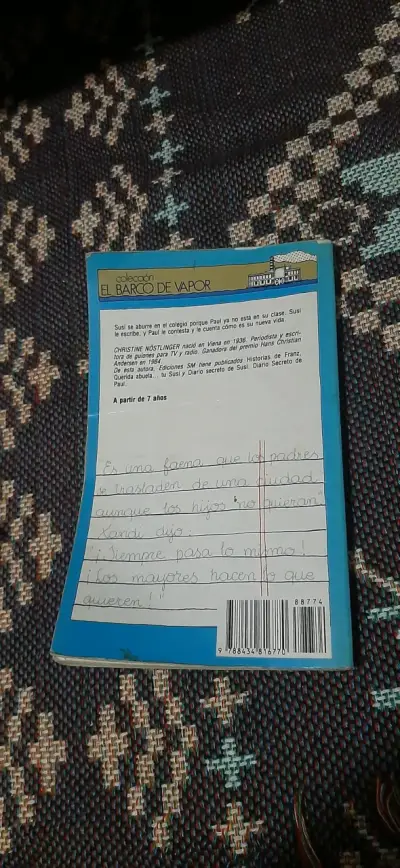 colección
EL BARCO DE VAPOR
Susi se aburre en el colegio porque Paul ya no está en su clase. Susi
le escribe, y Paul le contesta y le cuenta cómo es su nueva vida.
CHRISTINE NÖSTLINGER nació en Viena en 1936. Periodista y escri-
tora de guiones para TV y radio. Ganadora del premio Hans Christian
Andersen en 1984.
De esta autora, Ediciones SM tiene publicados: Historias de Franz,
Querida abuela... tu Susi y Diario secreto de Susi. Diario Secreto de
Paul.
A partir de 7 años
Es una faena que los padres
se trasladen de una ciudad
aunque los hijos no quieran.
Xandi dijo:
"¡Siempre pasa lo mismo!
¡Los mayores hacen lo que
quieren!"
88774
9 788434 816770